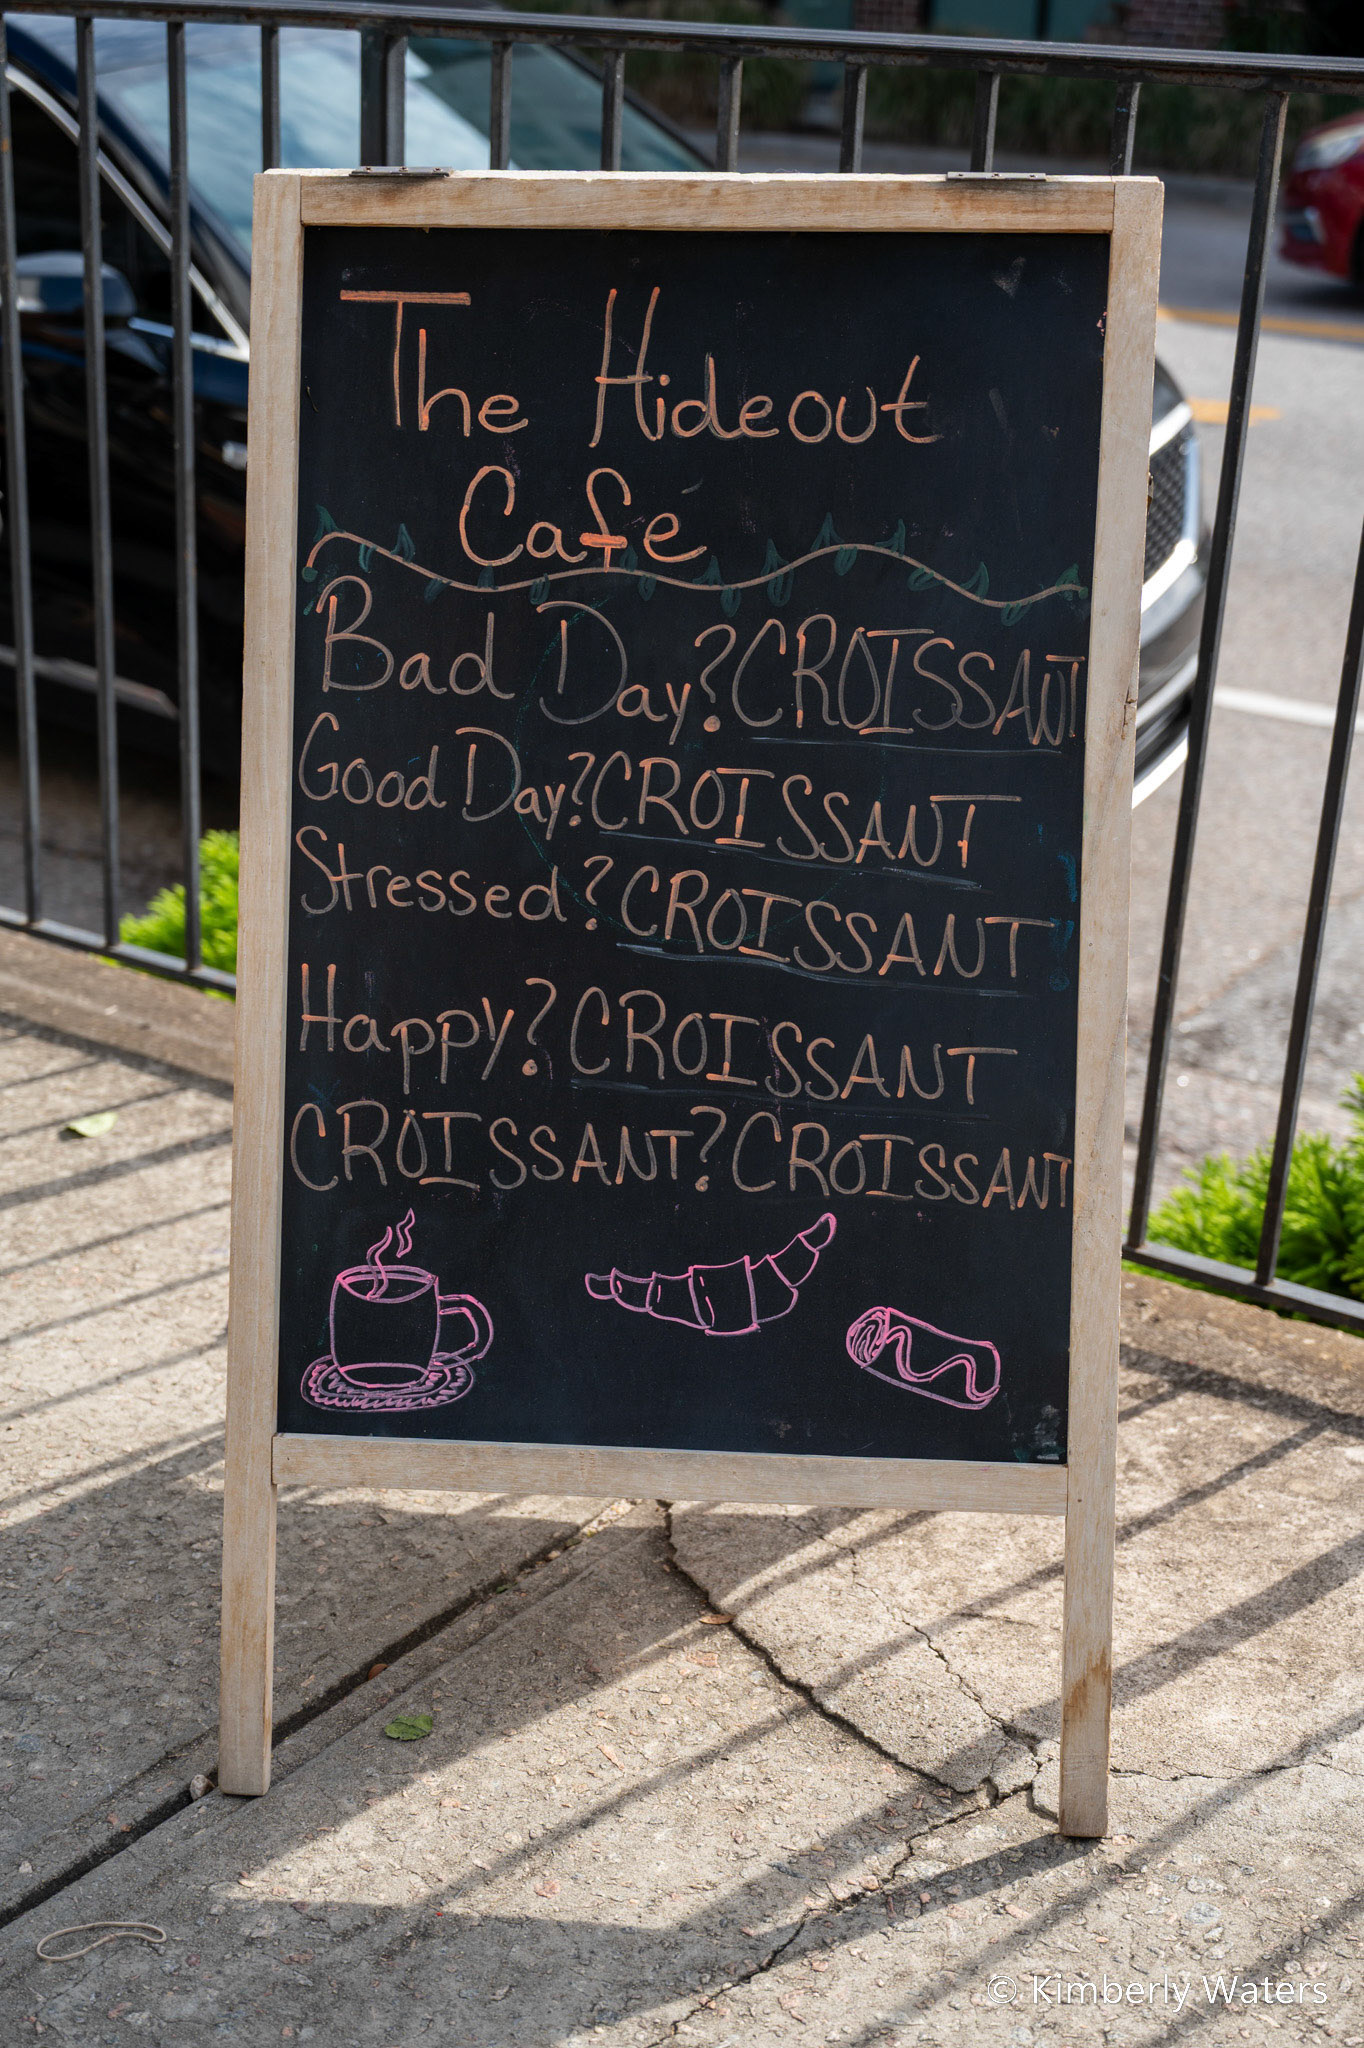 The Hideout
Cafe
Bad Day? CROISSANT
Good Day? CROISSANT
Stressed? CROISSANT
Happy? CROISSANT
CROISSANT? CROISSANT
© Kimberly Waters